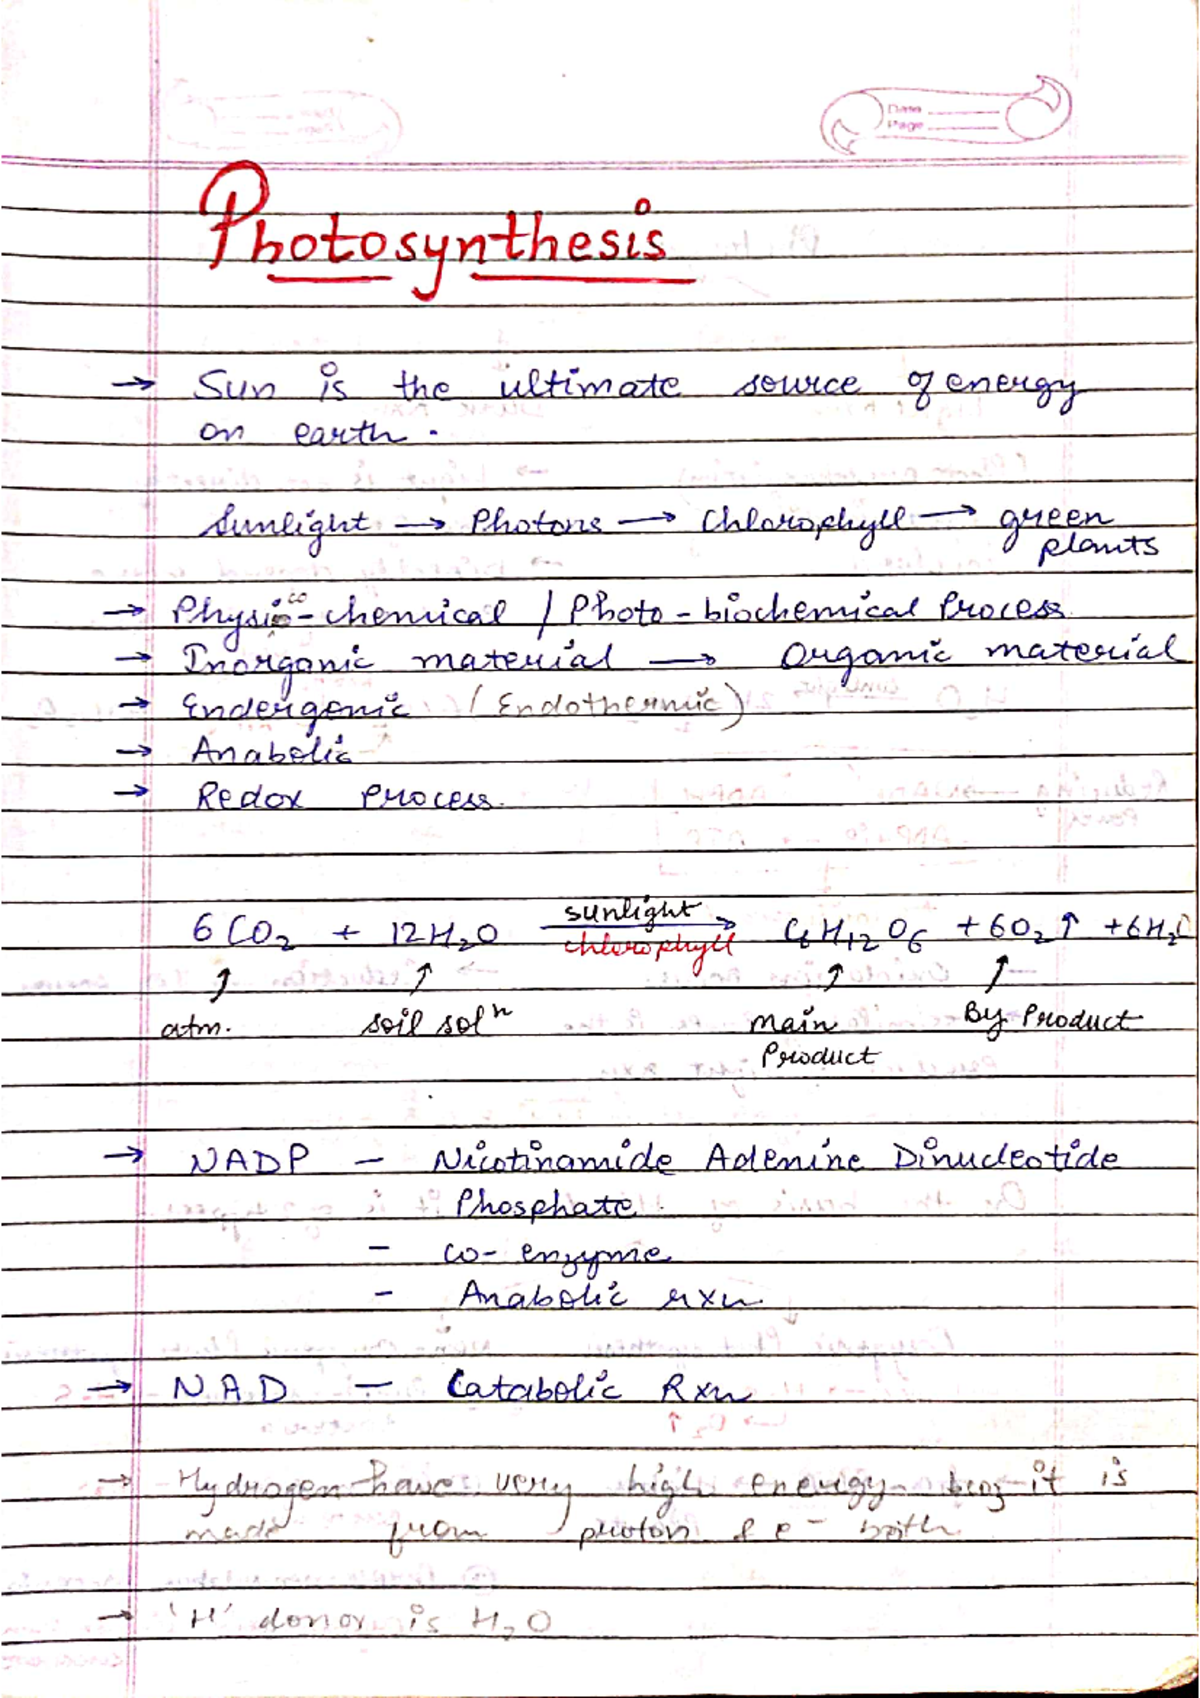 Date
Page
Photosynthesis
→ Sun is the ultimate source of energy
on earth.
Sunlight → Photons → Chlorophyll → green
plants
→ Physico-chemical / Photo-biochemical Process
→ Inorganic material → Organic material
→ Endergonic (Endothermic)
→ Anabolic
→ Redox Process.
6CO₂ + 12H₂O sunlight → C₆H₁₂O₆ + 6O₂↑ + 6H₂O
chlorophyll
↑ ↑ ↑ ↑
atm. soil solⁿ main By Product
Product
→ NADP – Nicotinamide Adenine Dinucleotide
Phosphate
– co-enzyme
– Anabolic rxn
→ NAD – Catabolic Rxn
→ Hydrogen have very high energy bcoz it is
made from proton & e⁻ both
→ 'H' donor is H₂O